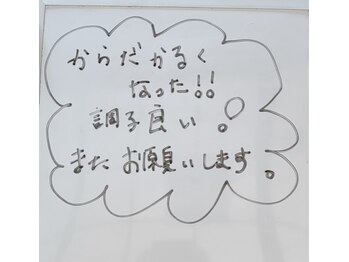 からだかるく
なった!!
調子良い!
またお願いします。